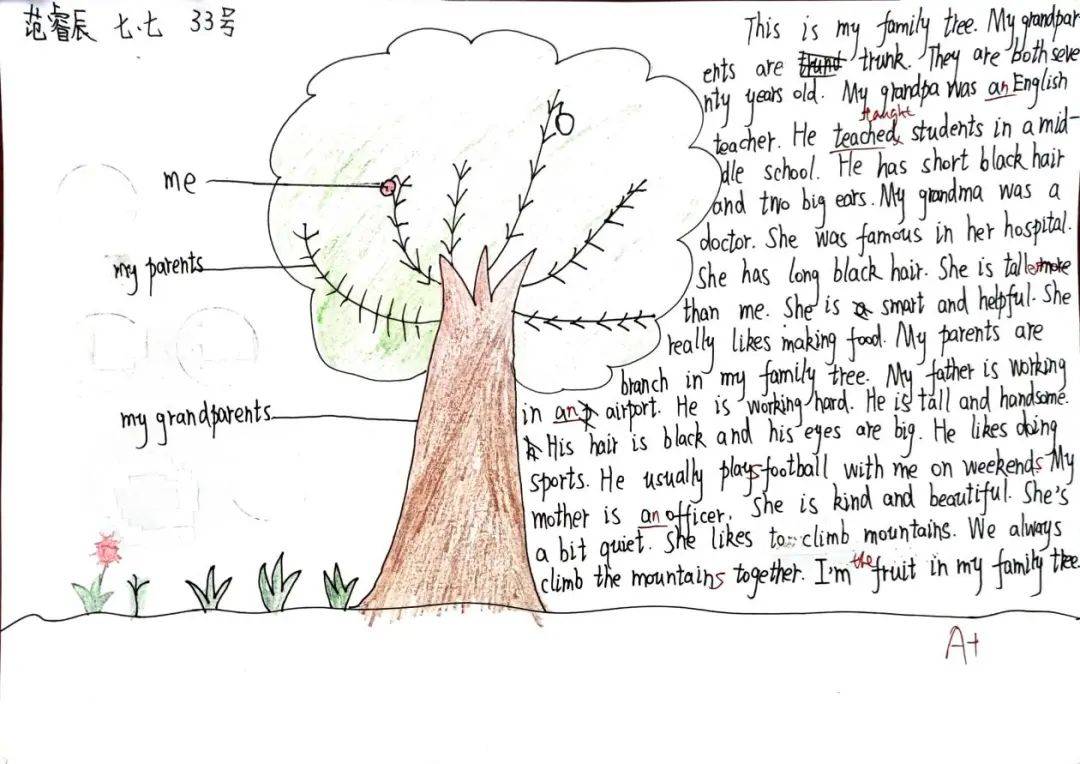 范睿辰 七.七 33号
me
my parents
my grandparents
This is my family tree. My grandpar
ents are trunk. They are both seve
nty years old. My grandpa was an English
taught
teacher. He teached students in a mid-
dle school. He has short black hair
and two big ears. My grandma was a
doctor. She was famous in her hospital.
She has long black hair. She is taller more
than me. She is a smart and helpful. She
really likes making food. My parents are
branch in my family tree. My father is working
in an airport. He is working hard. He is tall and handsome.
His hair is black and his eyes are big. He likes doing
sports. He usually plays football with me on weekends My
mother is an officer. She is kind and beautiful. She's
a bit quiet. She likes to climb mountains. We always
climb the mountains together. I'm the fruit in my family tree.
A+